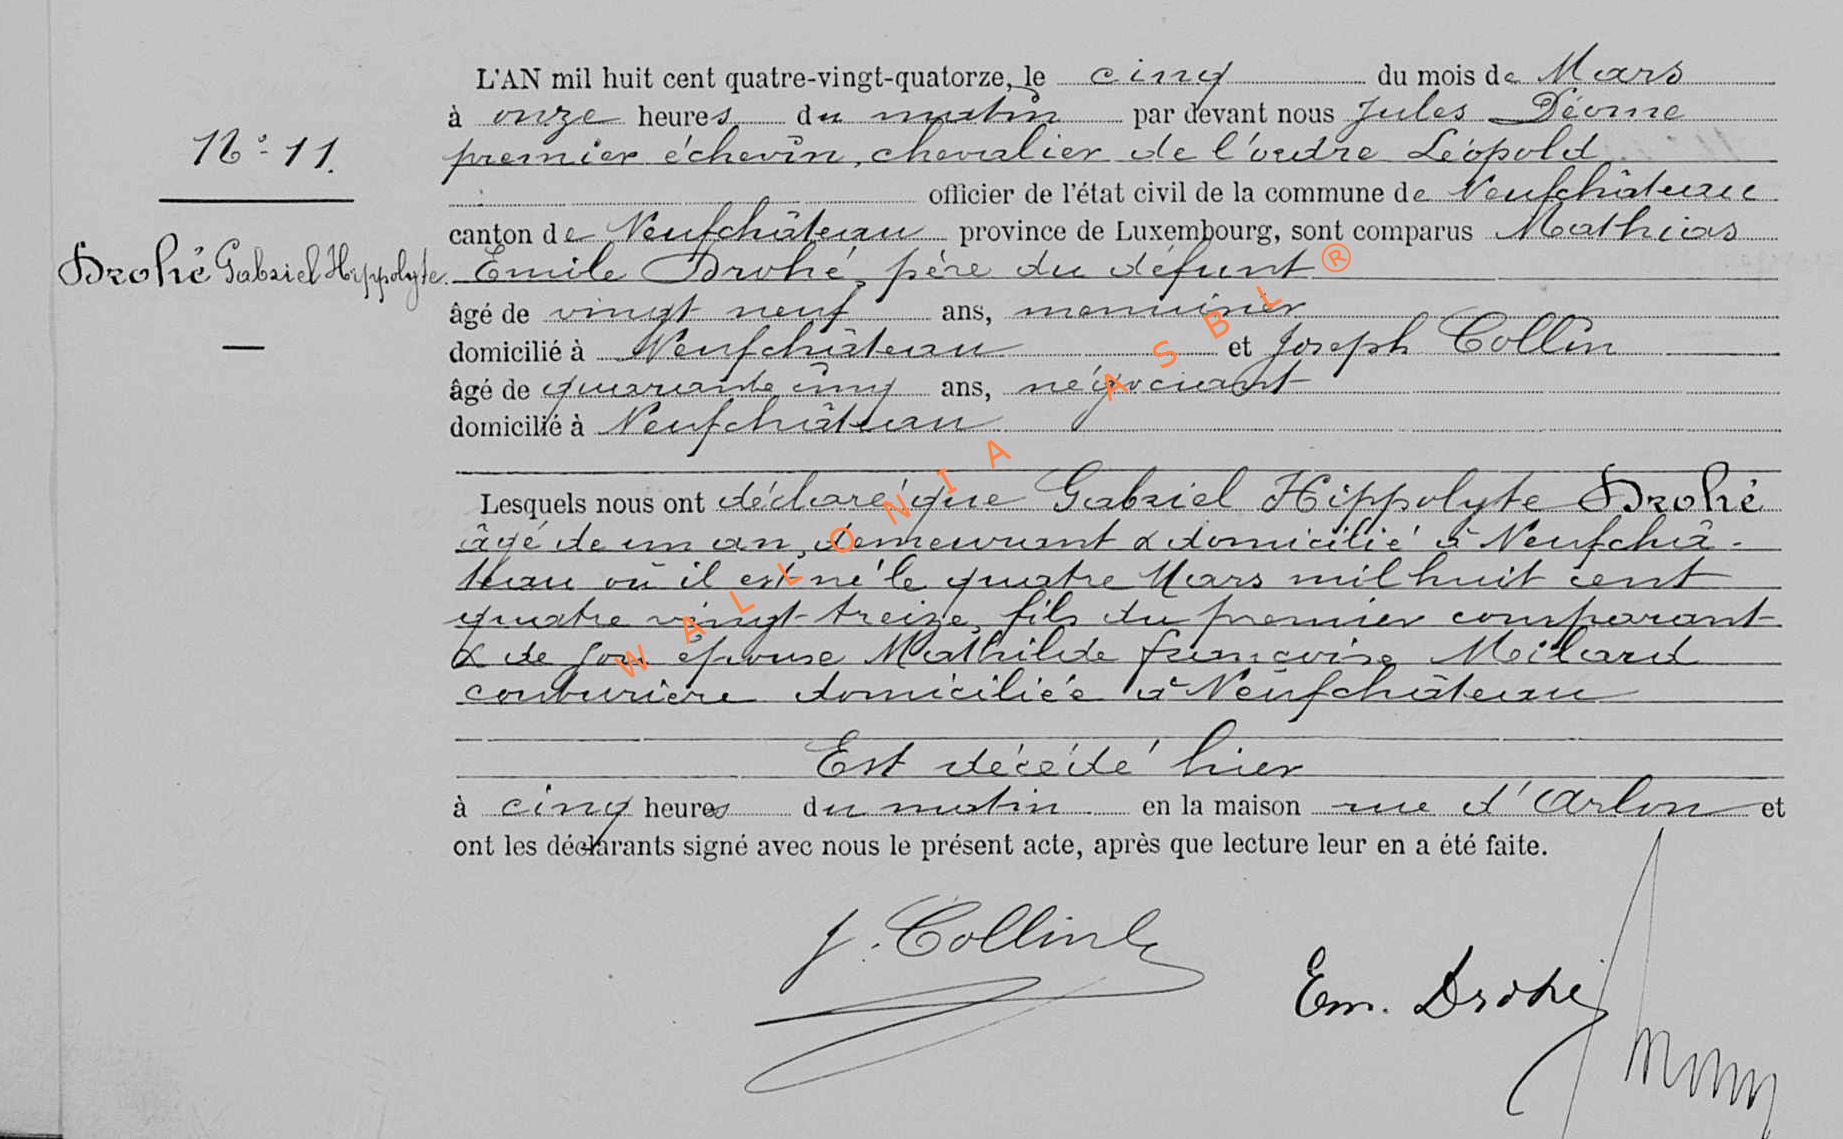 L'AN mil huit cent quatre-vingt-quatorze, le cinq du mois de Mars
à onze heures du matin par devant nous Jules Déome
N° 11.
premier échevin, chevalier de l'ordre Léopold
officier de l'état civil de la commune de Neufchâteau
canton de Neufchâteau province de Luxembourg, sont comparus Mathias
Drohé Gabriel Hippolyte.
Emile Drohé, père du défunt ®
âgé de vingt neuf ans, menuisier
domicilié à Neufchâteau et Joseph Collin
âgé de quarante cinq ans, négociant
domicilié à Neufchâteau
Lesquels nous ont déclaré que Gabriel Hippolyte Drohé
âgé de un an, demeurant & domicilié à Neufchâ-
teau où il est né le quatre Mars mil huit cent
quatre vingt-treize, fils du premier comparant
& de son épouse Mathilde françoise Moilard
couturière domiciliée à Neufchâteau
Est décédé hier
à cinq heures du matin en la maison rue d'Arlon et
ont les déclarants signé avec nous le présent acte, après que lecture leur en a été faite.
J. Collin
Em. Drohé
WALLONIA ASBL